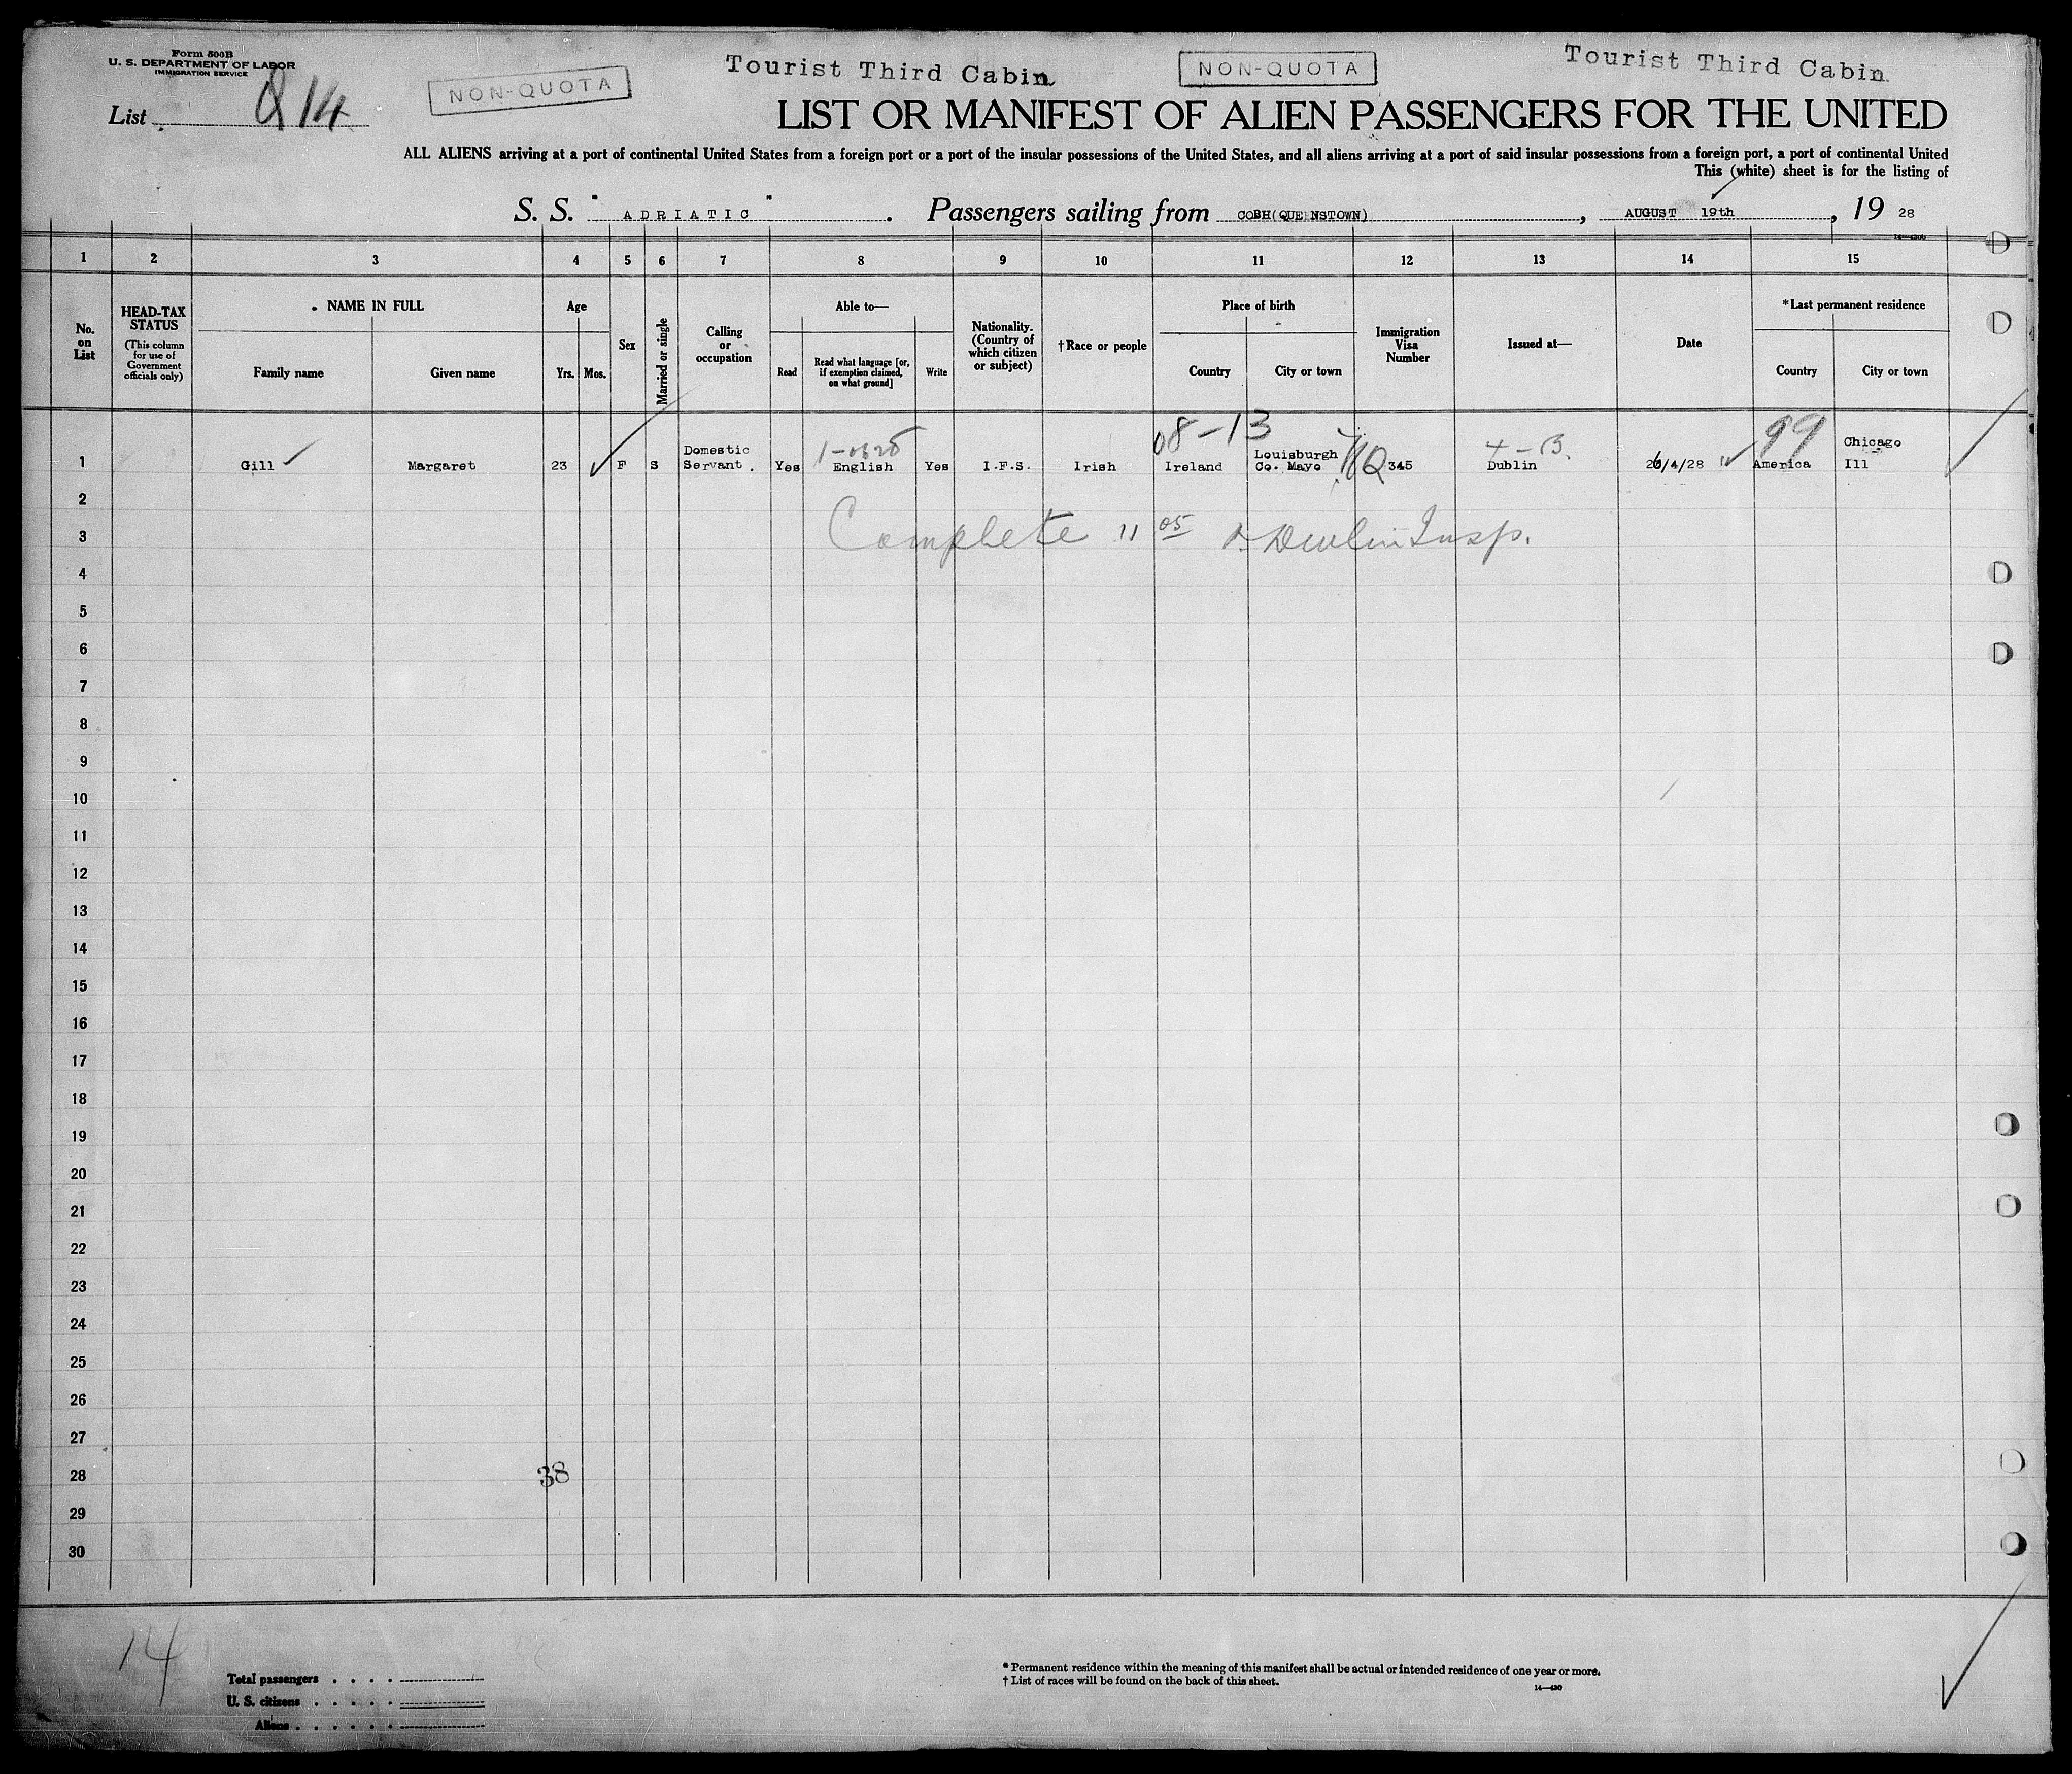 Form 500B
U. S. DEPARTMENT OF LABOR
IMMIGRATION SERVICE
List 14
NON-QUOTA
Tourist Third Cabin
NON-QUOTA
Tourist Third Cabin
LIST OR MANIFEST OF ALIEN PASSENGERS FOR THE UNITED
ALL ALIENS arriving at a port of continental United States from a foreign port or a port of the insular possessions of the United States, and all aliens arriving at a port of said insular possessions from a foreign port, a port of continental United
This (white) sheet is for the listing of
S. S. "ADRIATIC". Passengers sailing from COBH(QUEENSTOWN), AUGUST 19th, 19 28
1 2 3 4 5 6 7 8 9 10 11 12 13 14 15
No. on List
HEAD-TAX STATUS
(This column for use of Government officials only)
NAME IN FULL
Family name
Given name
Age
Yrs. Mos.
Sex
Married or single
Calling or occupation
Able to—
Read
Read what language [or, if exemption claimed, on what ground]
Write
Nationality. (Country of which citizen or subject)
†Race or people
Place of birth
Country
City or town
Immigration Visa Number
Issued at—
Date
*Last permanent residence
Country
City or town
08-13
4-B.
99
1 Gill Margaret 23 F S Domestic Servant. Yes English Yes I.F.S. Irish Ireland Louisburgh Co. Mayo 345 Dublin 26/4/28 America Chicago Ill
2
3 Complete 11 05 Insp.
4
5
6
7
8
9
10
11
12
13
14
15
16
17
18
19
20
21
22
23
24
25
26
27
28 38
29
30
14
Total passengers
U. S. citizens
Aliens
* Permanent residence within the meaning of this manifest shall be actual or intended residence of one year or more.
† List of races will be found on the back of this sheet.